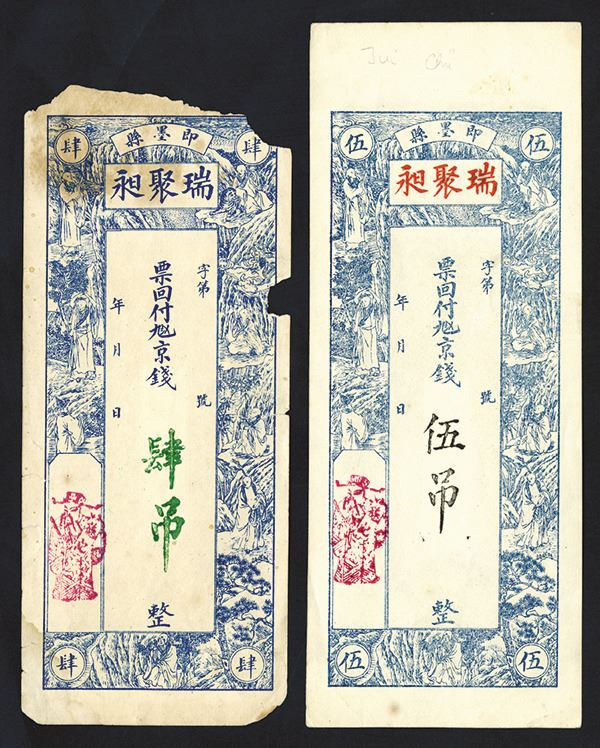 肆 即墨縣 肆
瑞聚昶
字第 號
票回付 京錢 肆吊 整
年 月 日
肆 肆
Jui Chü
伍 即墨縣 伍
瑞聚昶
字第 號
票回付 京錢 伍吊 整
年 月 日
伍 伍